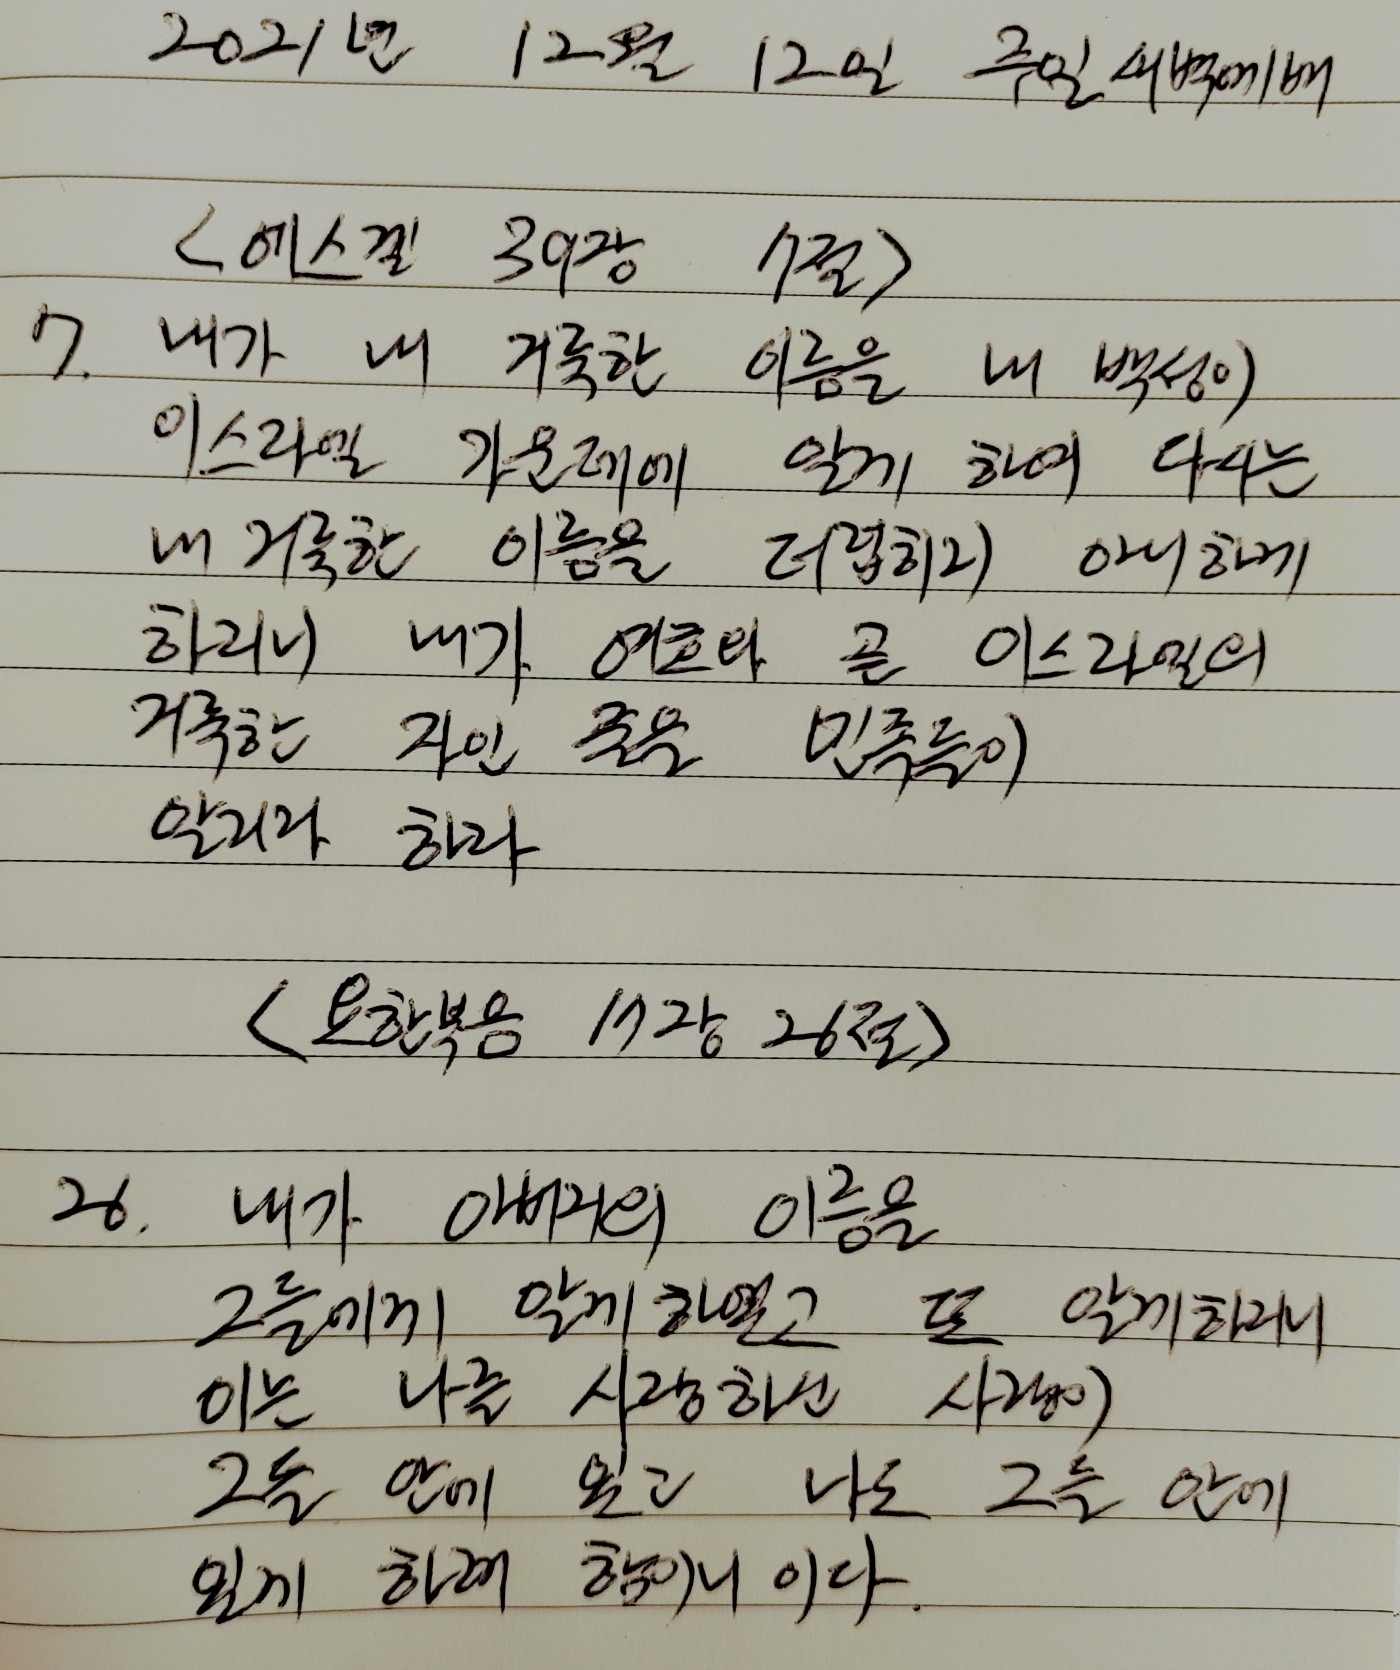 2021년 12월 12일 주일새벽예배
<에스겔 39장 7절>
7. 내가 내 거룩한 이름을 내 백성이
이스라엘 가운데에 알게 하여 다시는
내 거룩한 이름을 더럽히지 아니하게
하리니 내가 여호와 곧 이스라엘의
거룩한 자인 줄을 민족들이
알리라 하라
<요한복음 17장 26절>
26. 내가 아버지의 이름을
그들에게 알게하였고 또 알게하리니
이는 나를 사랑하신 사랑이
그들 안에 있고 나도 그들 안에
있게 하려 함이니이다.